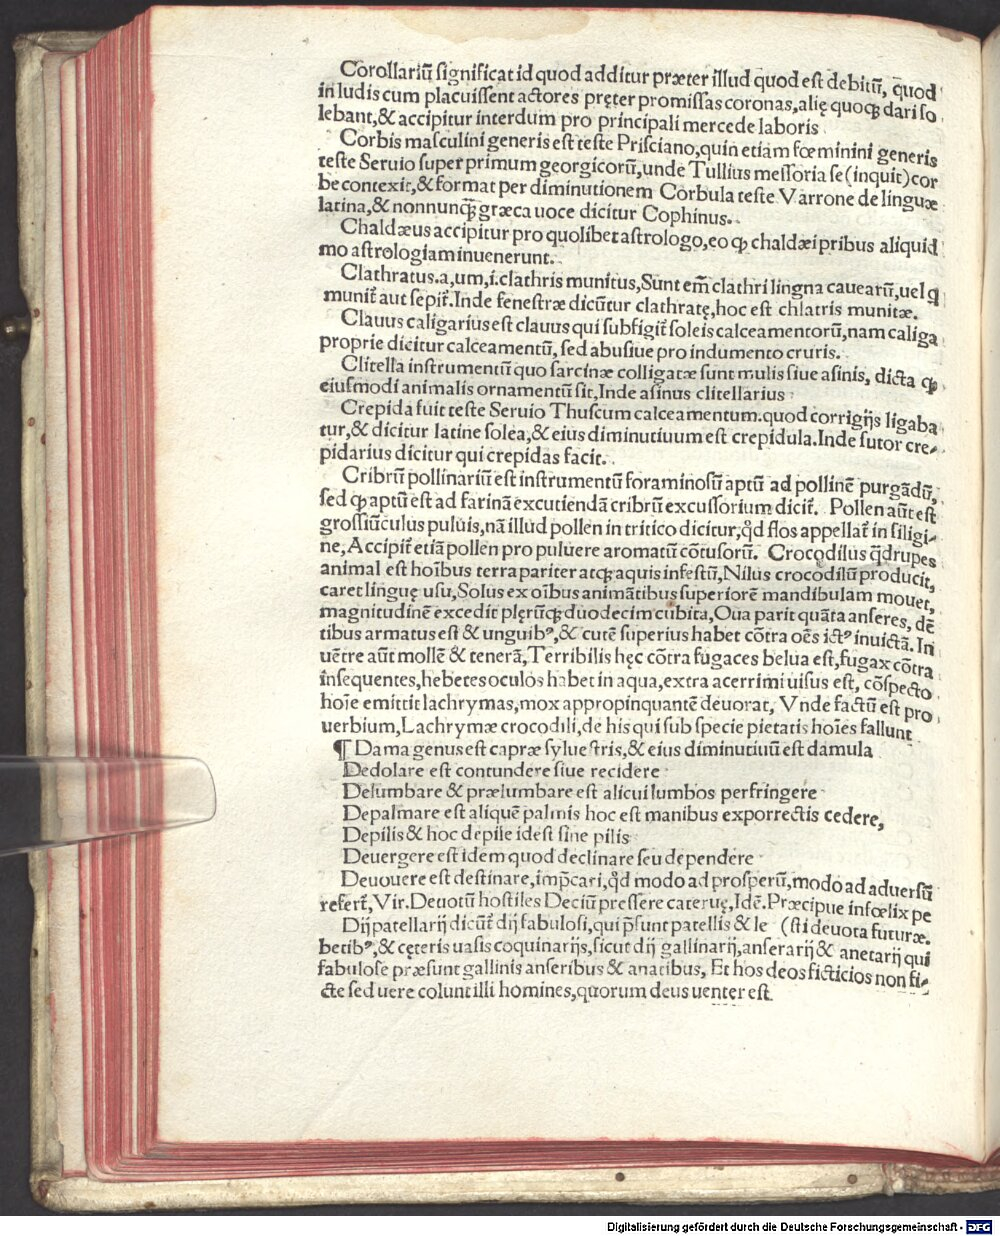 Corollariū significat id quod additur præter illud quod est debitū, q̄uod
in ludis cum placuissent actores pręter promissas coronas,alię quoqꝫ dari so
lebant,& accipitur interdum pro principali mercede laboris
Corbis masculini generis est teste Prisciano,quin etiam fœminini generis
teste Seruio super primum georgicorū,unde Tullius messoria se(inquit)cor
be contexit,& format per diminutionem Corbula teste Varrone de linguæ
latina,& nonnunqꝫ græca uoce dicitur Cophinus.
Chaldæus accipitur pro quolibet astrologo,eo ꝙ chaldæi pribus aliquid
mo astrologiam inuenerunt.
Clathratus.a,um,i.clathris munitus,Sunt em̄ clathri lingna cauearū,uel q̄
munit̄ aut sepit̄.Inde fenestræ dicūtur clathratę,hoc est chlatris munitæ.
Clauus caligarius est clauus qui subfigit̄ soleis calceamentorū,nam caliga
proprie dicitur calceamentū, sed abusiue pro indumento cruris.
Clitella instrumentū quo sarcinæ colligatæ sunt mulis siue asinis, dicta ꝙ
eiusmodi animalis ornamentū sit,Inde asinus clitellarius
Crepida fuit teste Seruio Thuscum calceamentum.quod corrigijs ligaba
tur,& dicitur latine solea,& eius diminutiuum est crepidula.Inde sutor cre-
pidarius dicitur qui crepidas facit.
Cribrū pollinariū est instrumentū foraminosū aptū ad pollinē purgādū,
sed ꝙ aptū est ad farinā excutiendā cribrū excussorium dicit̄. Pollen aūt est
grossiūculus puluis,nā illud pollen in tritico dicitur,qd̄ flos appellat̄ in siligi-
ne,Accipit̄ etiā pollen pro puluere aromatū cōtusorū. Crocodilus q̄drupes
animal est hoībus terra pariter atqꝫ aquis infestū,Nilus crocodilū producit,
caret linguę usu,Solus ex oībus animātibus superiorē mandibulam mouet,
magnitudinē excedit plęrūqꝫ duodecim cubita,Oua parit quāta anseres, dē
tibus armatus est & unguibꝰ,& cutē superius habet cōtra oēs ictꝰ inuictā. In
uētre aūt mollē & tenerā,Terribilis hęc cōtra fugaces belua est,fugax cōtra
insequentes,hebetes oculos habet in aqua,extra acerrimi uisus est, cōspecto
hoīe emittit lachrymas,mox appropinquantē deuorat, Vnde factū est pro
uerbium,Lachrymæ crocodili,de his qui sub specie pietatis hoīes fallunt
¶ Dama genus est capræ syluestris,& eius diminutiuū est damula
Dedolare est contundere siue recidere
Delumbare & prælumbare est alicui lumbos perfringere
Depalmare est aliquē palmis hoc est manibus exporrectis cedere,
Depilis & hoc depile idest sine pilis
Deuergere est idem quod declinare seu dependere
Deuouere est destinare,imp̄cari,qd̄ modo ad prosperū,modo ad aduersū
refert̄,Vir.Deuotū hostiles Deciū pressere cateruę,Idē.Præcipue infœlix pe
Dij patellarij dicūt̄ dij fabulosi,qui p̄sunt patellis & le (sti deuota futuræ.
betibꝰ,& cęteris uasis coquinarijs,sicut dij gallinarij,anserarij & anetarij qui
fabulose præsunt gallinis anseribus & anatibus, Et hos deos ficticios non fi-
cte sed uere colunt illi homines,quorum deus uenter est.
Digitalisierung gefördert durch die Deutsche Forschungsgemeinschaft - DFG